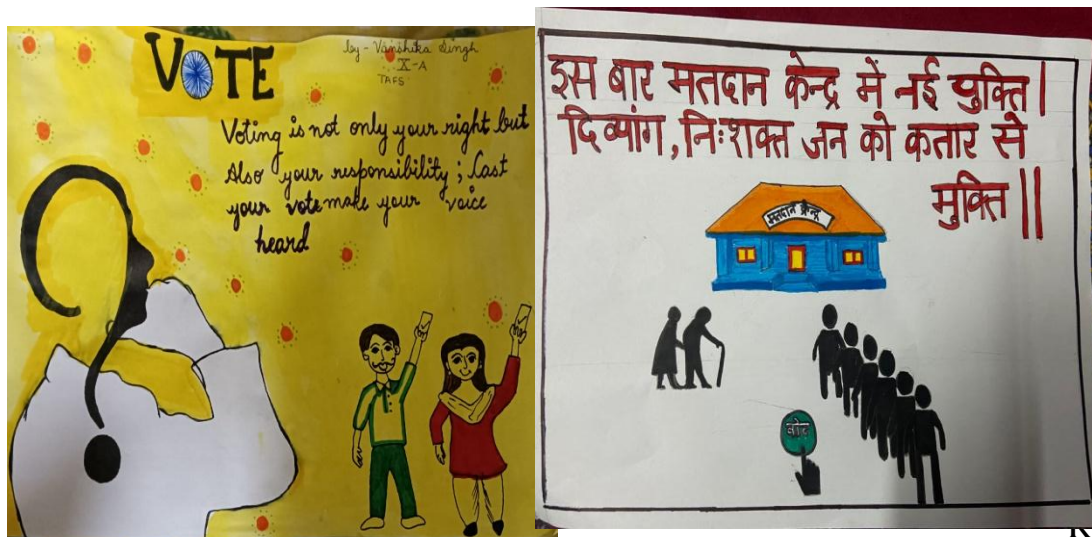 VOTE
by - Vanshika Singh
X-A
TAFS
Voting is not only your right but
Also your responsibility; Cast
your vote make your voice
heard
इस बार मतदान केन्द्र में नई युक्ति।
दिव्यांग, निःशक्त जन को कतार से
मुक्ति॥
मतदान केन्द्र
वोट